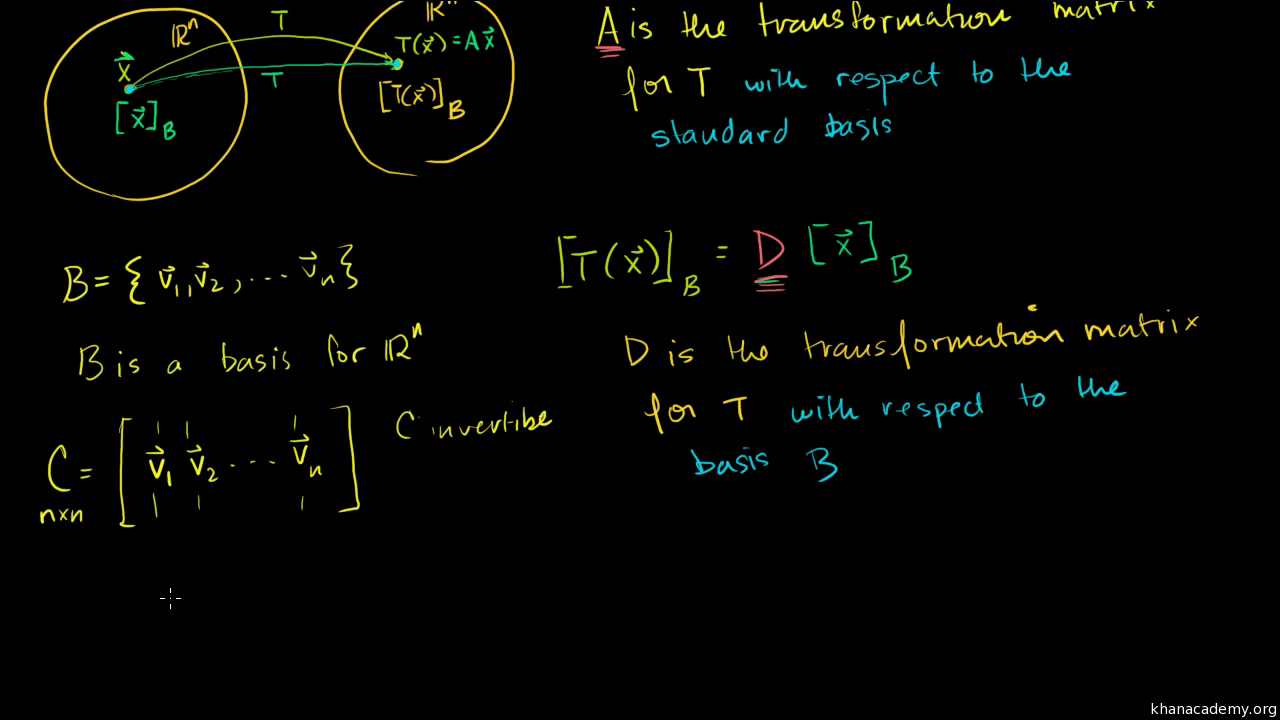 ℝⁿ T ℝⁿ
x⃗ T(x⃗) = Ax⃗
T
[x⃗]_B [T(x⃗)]_B
A is the transformation matrix
for T with respect to the
standard basis
B = { v⃗₁, v⃗₂, ... v⃗ₙ }
B is a basis for ℝⁿ
C = [ v⃗₁ v⃗₂ ... v⃗ₙ ] C invertibe
n×n
[T(x⃗)]_B = D [x⃗]_B
D is the transformation matrix
for T with respect to the
basis B
khanacademy.org